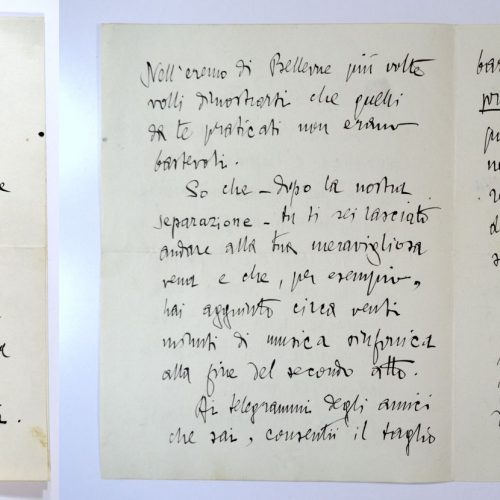 Nell'eremo di Bellevue più volte
volli dimostrarti che quelli
da te praticati non erano
bastevoli.
So che – dopo la nostra
separazione – tu ti sei lasciato
andare alla tua meravigliosa
vena e che, per esempio,
hai aggiunto circa venti
minuti di musica sinfonica
alla fine del secondo atto.
Ai telegrammi degli amici
che sai, consentii il taglio